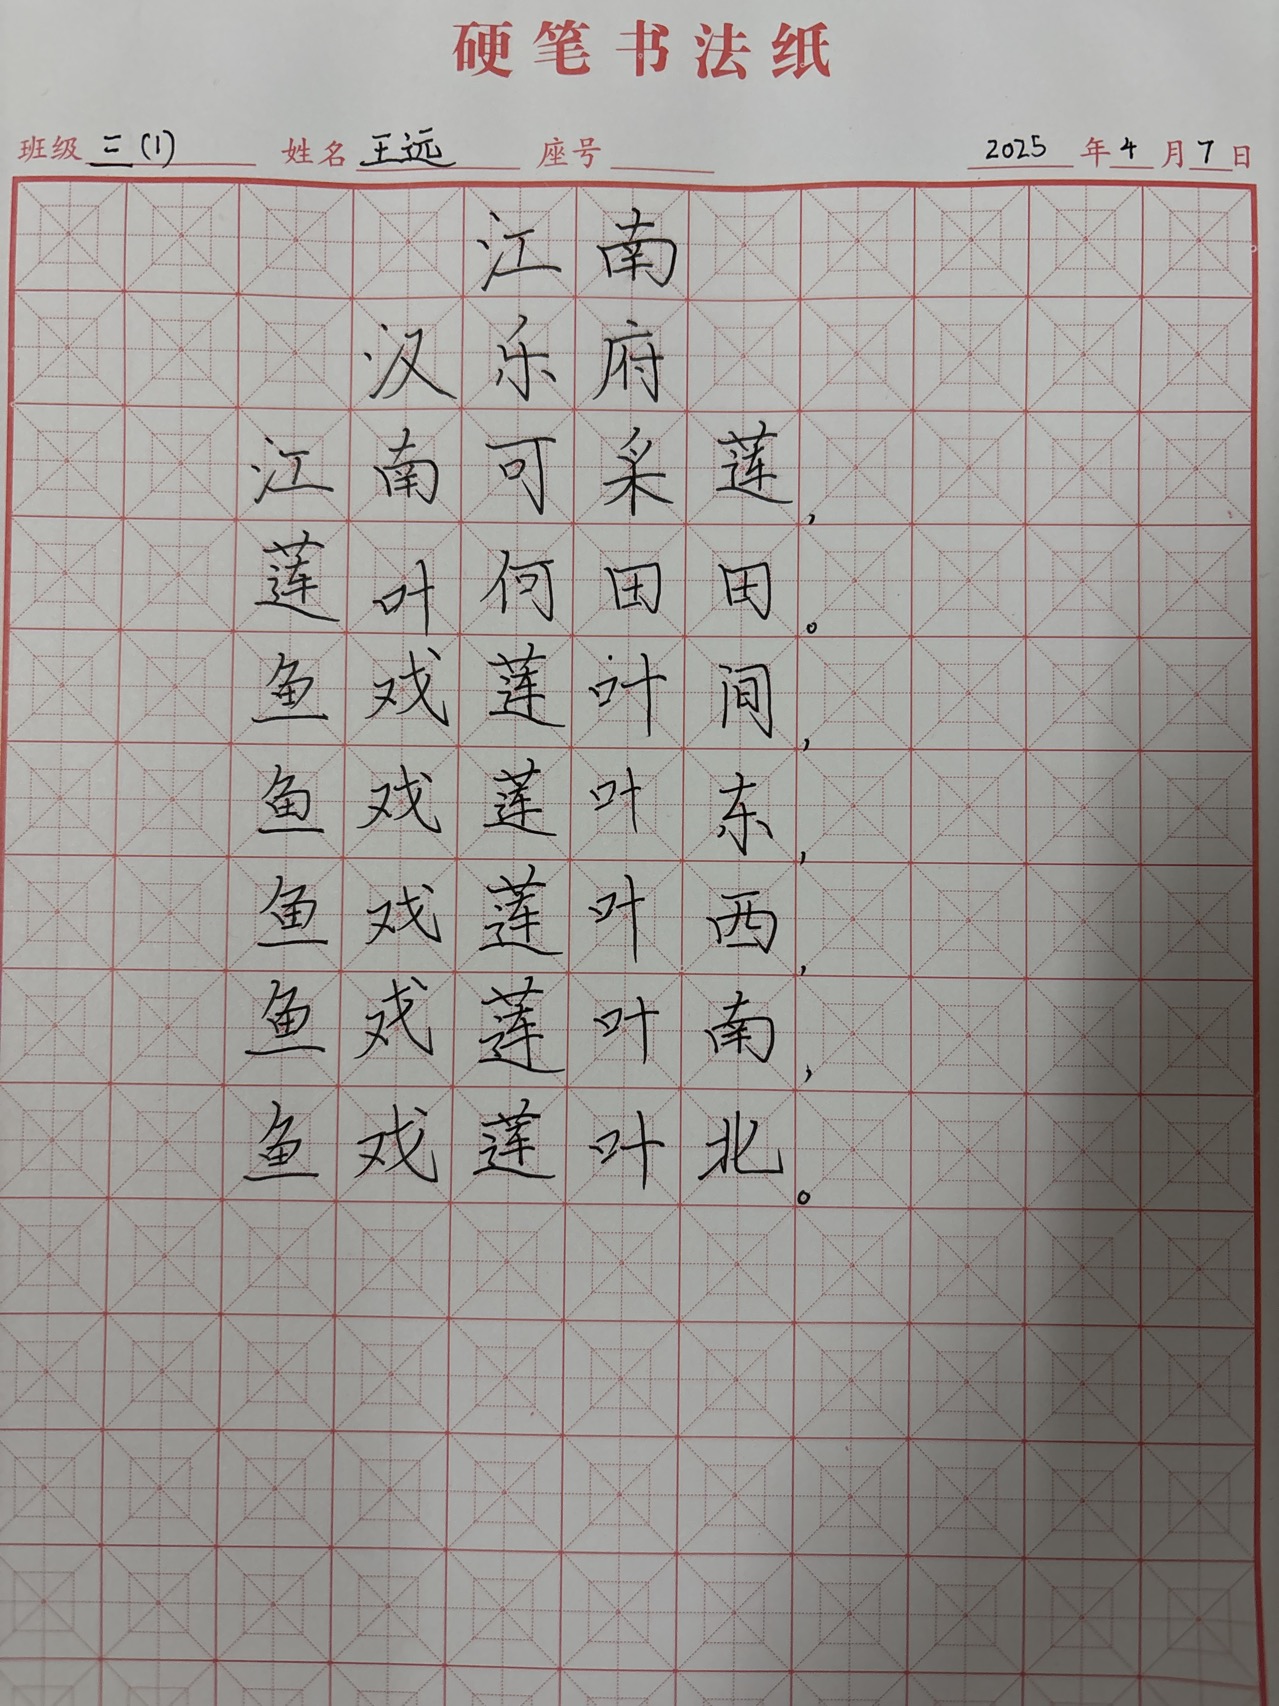 硬笔书法纸
班级 三(1) 姓名 王远 座号 2025年4月7日
江南
汉乐府
江南可采莲,
莲叶何田田。
鱼戏莲叶间,
鱼戏莲叶东,
鱼戏莲叶西,
鱼戏莲叶南,
鱼戏莲叶北。